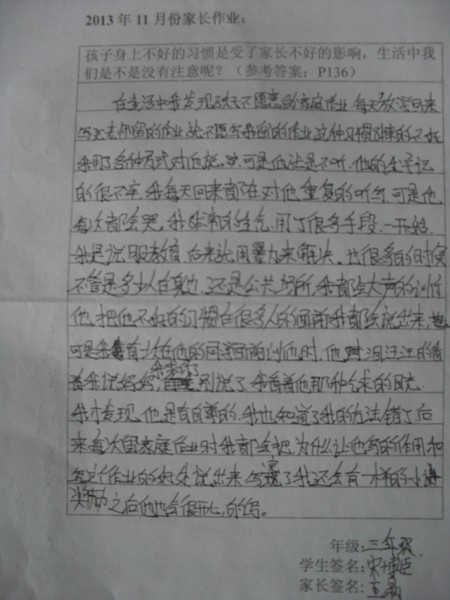 2013 年 11 月份家长作业：
孩子身上不好的习惯是受了家长不好的影响，生活中我
们是不是没有注意呢？（参考答案：P136）
在生活中我发现孩子不愿意的家庭作业每天放学回来
写完老师留的作业就不愿写我留的作业这种习惯了真的不好
我用了各种方式对他说，可是他还是不听，他的坐字记
的很不牢，我每天回来都在对他重复的听写，可是他
每次都会哭，我非常的生气，用了很多手段，一开始
我是说服教育，后来就用暴力来解决，当很多的时候
不管是多少人在身边，还是公共场所，我都会大声的训斥
他，把他不好的习惯在很多人的面前我都会说出来，
可是我有一次在他的同学面前训他时，他眼泪汪汪的看
着我说妈妈，别说了，我看着他那种乞求的目光
我才发现，他是有自尊的，我也知道了我的方法错了，后
来每次留家庭作业时我都会把为什么让他写的作用和
写这个作业的好处说出来，写完了我还会有一样的小
奖励，之后他也会很开心的写。
年级：三年级
学生签名：宋
家长签名：